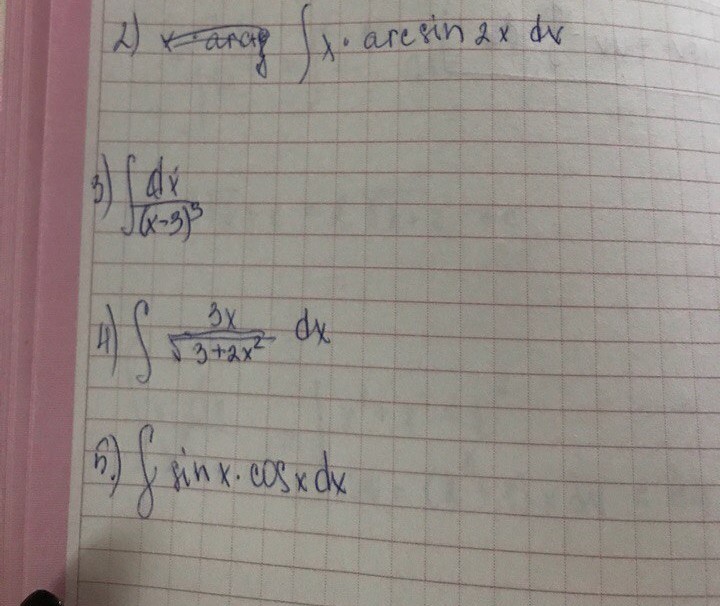 2) ∫ x · arcsin 2x dx
3) ∫ dx/(x-3)³
4) ∫ 3x/√(3+2x²) dx
5.) ∫ sin x · cos x dx